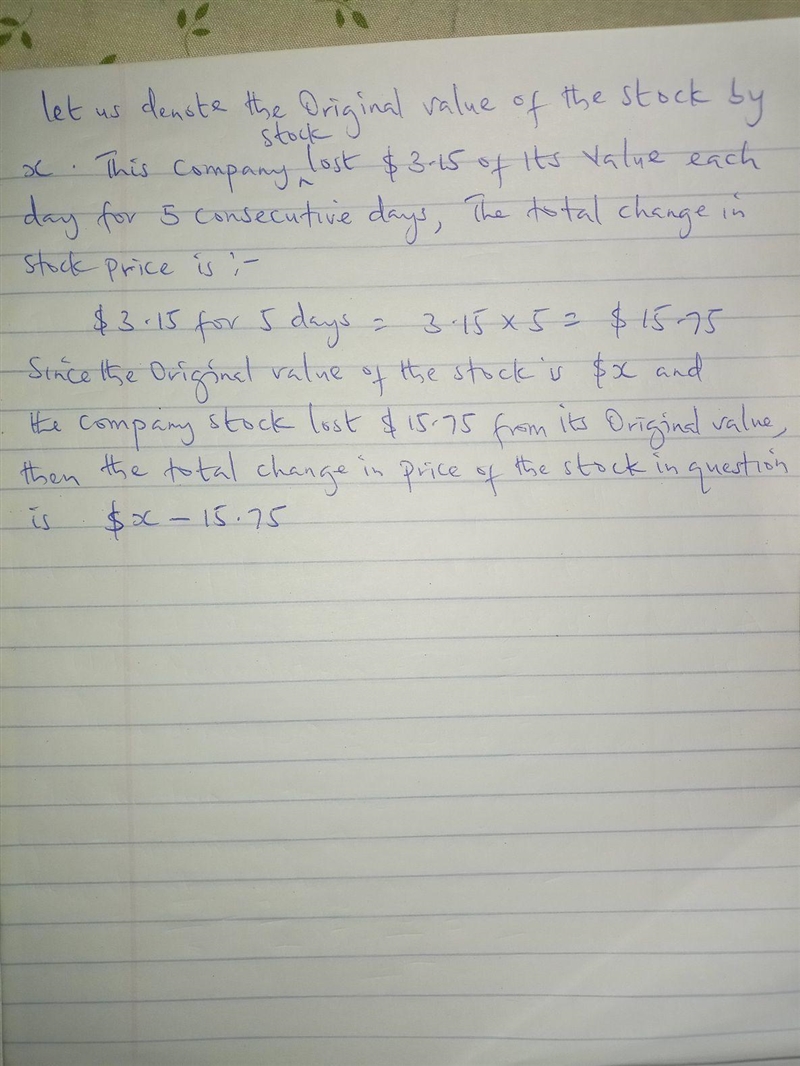 let us denote the Original value of the stock by
x. This company stock lost $3.15 of Its Value each
day for 5 consecutive days, The total change in
stock price is :-
$3.15 for 5 days = 3.15 x 5 = $15.75
Since the Original value of the stock is $x and
the company stock lost $15.75 from its Original value,
then the total change in price of the stock in question
is $x - 15.75